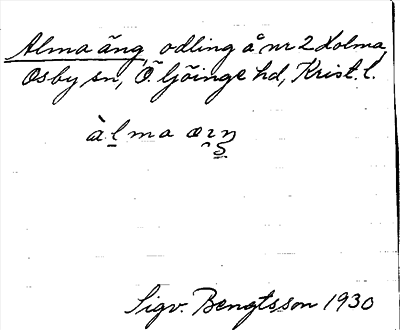 Alma äng, odling å nr 2 Holma,
Osby sn, Ö. Göinge hd, Krist. l.
Sigv. Bengtsson 1930